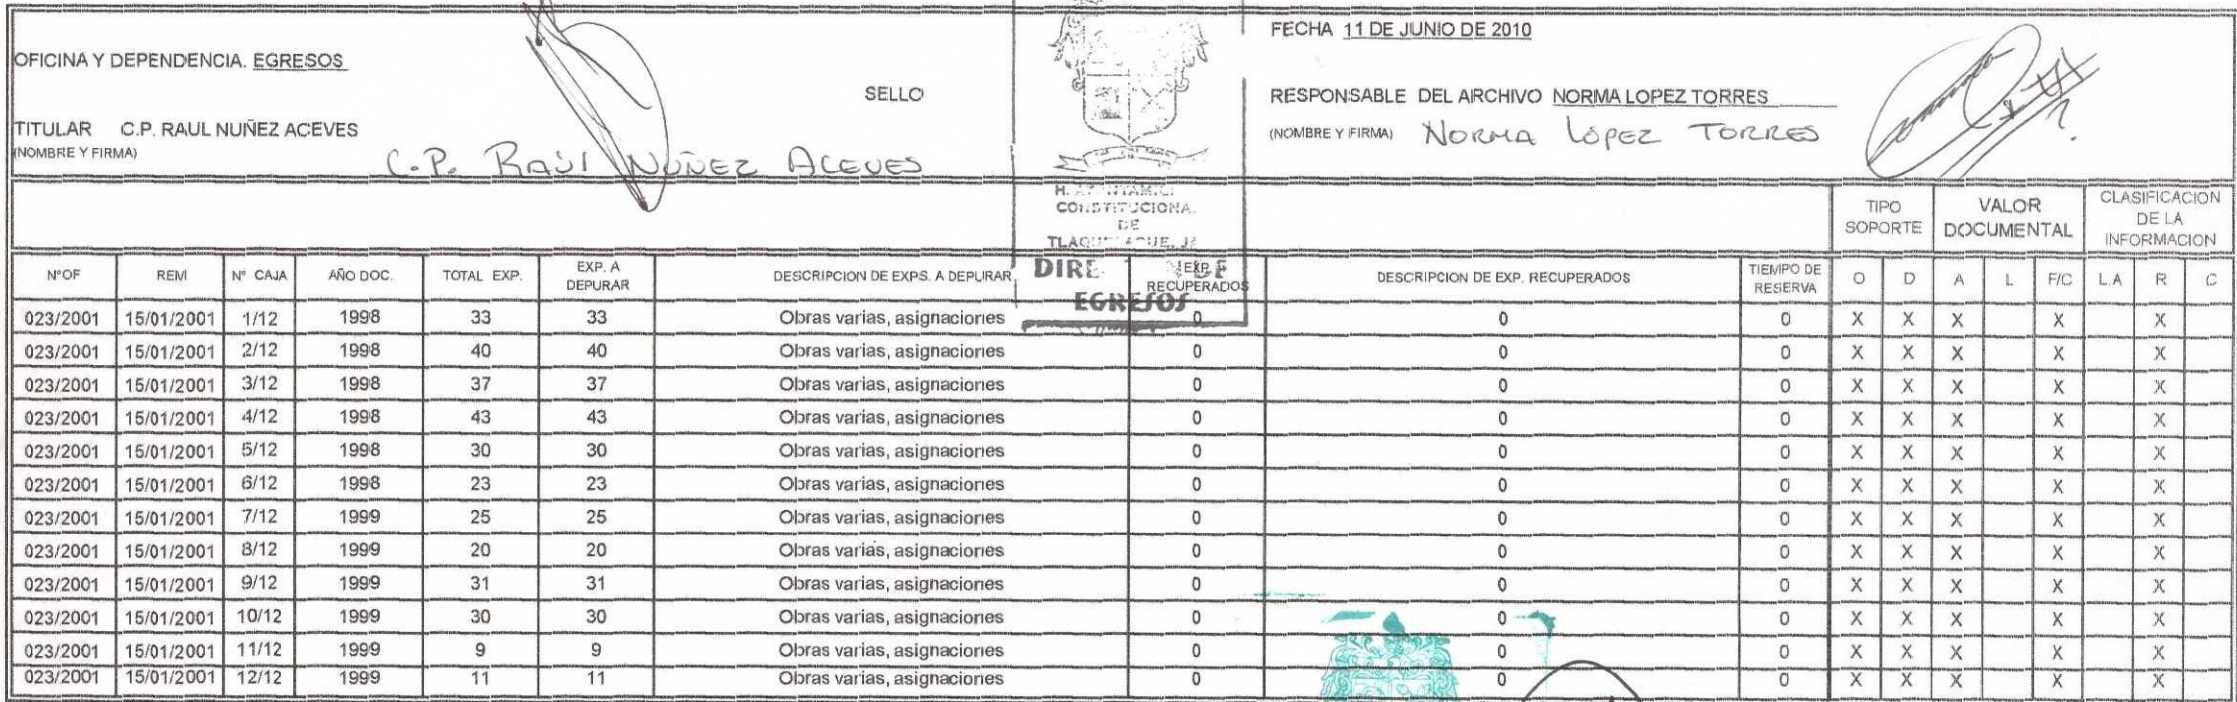 FECHA 11 DE JUNIO DE 2010
OFICINA Y DEPENDENCIA. EGRESOS
SELLO
RESPONSABLE DEL ARCHIVO NORMA LOPEZ TORRES
TITULAR C.P. RAUL NUÑEZ ACEVES
(NOMBRE Y FIRMA) NORMA LÓPEZ TORRES
(NOMBRE Y FIRMA) C.P. RAÚL NÚÑEZ ACEVES
H.
CONSTITUCIONA.
DE
TIPO SOPORTE VALOR DOCUMENTAL CLASIFICACION DE LA INFORMACION
DE
EGRESOS
N°OF REMI N° CAJA AÑO DOC. TOTAL EXP. EXP. A DEPURAR DESCRIPCION DE EXPS. A DEPURAR EXP. RECUPERADOS DESCRIPCION DE EXP. RECUPERADOS TIEMPO DE RESERVA O D A L F/C L.A R C
023/2001 15/01/2001 1/12 1998 33 33 Obras varias, asignaciones 0 0 0 X X X X X
023/2001 15/01/2001 2/12 1998 40 40 Obras varias, asignaciones 0 0 0 X X X X X
023/2001 15/01/2001 3/12 1998 37 37 Obras varias, asignaciones 0 0 0 X X X X X
023/2001 15/01/2001 4/12 1998 43 43 Obras varias, asignaciones 0 0 0 X X X X X
023/2001 15/01/2001 5/12 1998 30 30 Obras varias, asignaciones 0 0 0 X X X X X
023/2001 15/01/2001 6/12 1998 23 23 Obras varias, asignaciones 0 0 0 X X X X X
023/2001 15/01/2001 7/12 1999 25 25 Obras varias, asignaciones 0 0 0 X X X X X
023/2001 15/01/2001 8/12 1999 20 20 Obras varias, asignaciones 0 0 0 X X X X X
023/2001 15/01/2001 9/12 1999 31 31 Obras varias, asignaciones 0 0 0 X X X X X
023/2001 15/01/2001 10/12 1999 30 30 Obras varias, asignaciones 0 0 0 X X X X X
023/2001 15/01/2001 11/12 1999 9 9 Obras varias, asignaciones 0 0 0 X X X X X
023/2001 15/01/2001 12/12 1999 11 11 Obras varias, asignaciones 0 0 0 X X X X X